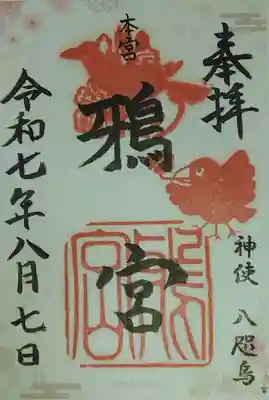 奉拝
神使 八咫烏
本宮
鴉宮
令和七年八月七日
鴉宮